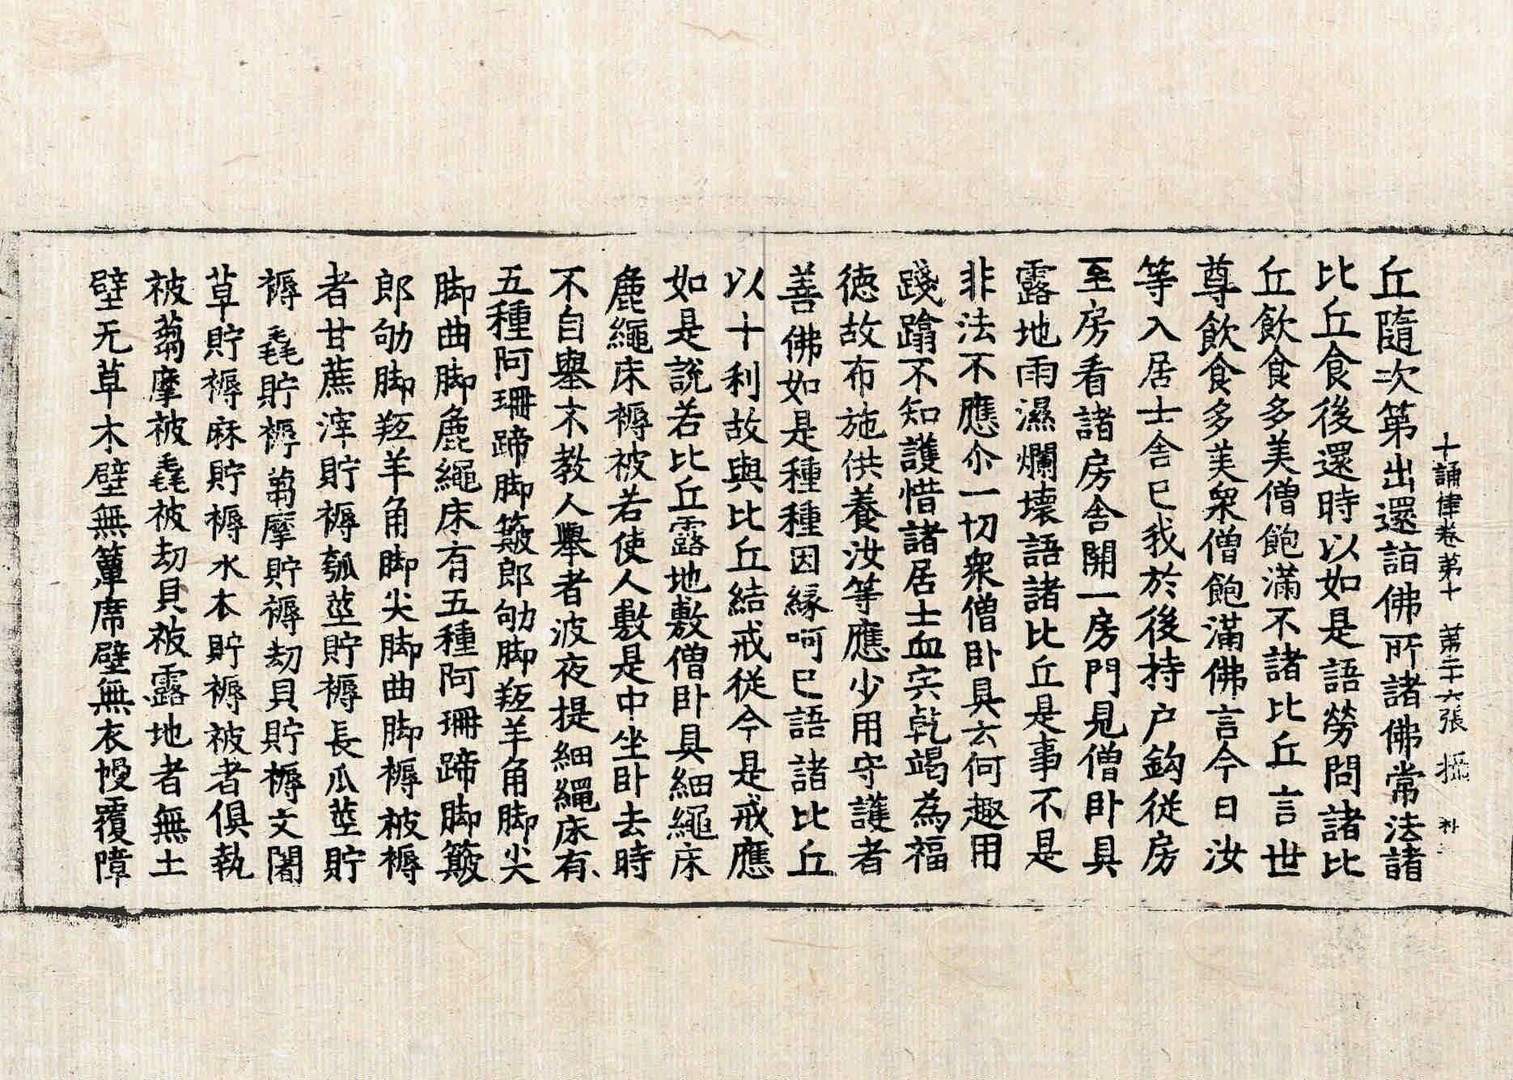 十誦律卷第十　第二十六張　攝
丘隨次第出還詣佛所諸佛常法諸
比丘食後還時以如是語勞問諸比
丘飲食多美僧飽滿不諸比丘言世
尊飲食多美衆僧飽滿佛言今日汝
等入居士舍已我於後持户鈎從房
至房看諸房舍開一房門見僧卧具
露地雨濕爛壞語諸比丘是事不是
非法不應尒一切衆僧卧具云何趣用
踐蹹不知護惜諸居士血宍乹竭為福
德故布施供養汝等應少用守護者
善佛如是種種因緣呵已語諸比丘
以十利故與比丘結戒從今是戒應
如是說若比丘露地敷僧卧具細繩床
麁繩床褥被若使人敷是中坐卧去時
不自舉不教人舉者波夜提細繩床有
五種阿珊蹄脚簸郎劬脚羖羊角脚尖
脚曲脚麁繩床有五種阿珊蹄脚簸
郎劬脚羖羊角脚尖脚曲脚褥被褥
者甘蔗滓貯褥瓠莖貯褥長瓜莖貯
褥毳貯褥蒭摩貯褥劫貝貯褥文闍
草貯褥麻貯褥水本貯褥被者俱執
被蒭摩被毳被劫貝被露地者無土
壁无草木壁無簟席壁無衣幔覆障